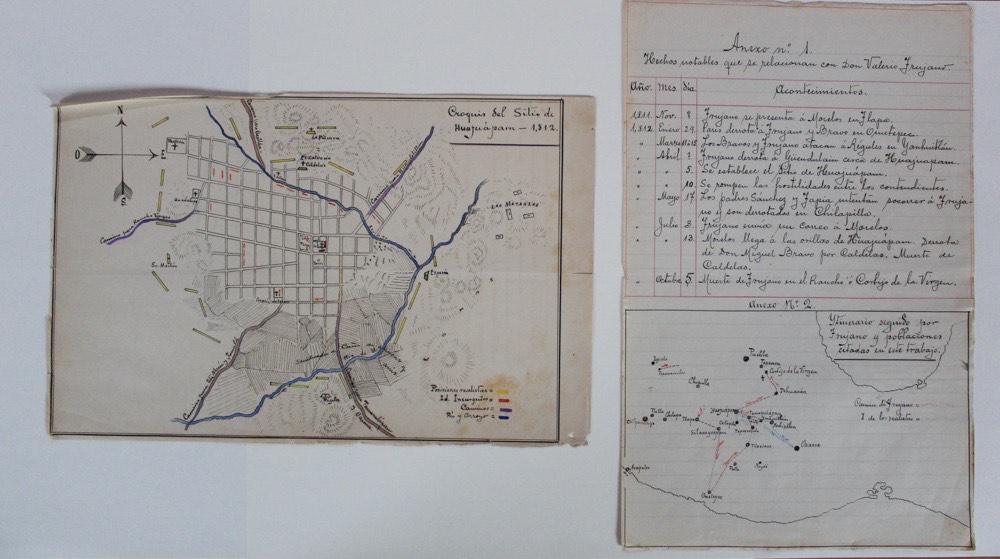 Croquis del Sitio de
Huajuápam - 1,812.
N
O
E
S
El Calvario
Las Matanzas
Posiciones realistas =
Id. Insurgentes =
Caminos =
Río y Arroyo =
Anexo n.º 1.
Hechos notables que se relacionan con Don Valerio Trujano.
Año. Mes. Día. Acontecimientos.
1,811. Nov. 8 Trujano se presenta á Morelos en Tlapa.
1,812. Enero 29. Paris derrota á Trujano y Bravo en Ometepec.
" Marzo 11-15 Los Bravos y Trujano atacan á Régules en Yanhuitlán.
" Abril Trujano derrota á Guendulain cerca de Huajuapam.
" " 5. Se establece el Sitio de Huajuapam.
" " 10. Se rompen las hostilidades entre los contendientes.
" Mayo 17. Los padres Sánchez y Tapia intentan socorrer á Truja-
no y son derrotados en Chilapilla.
" Julio 3. Trujano envía un Correo á Morelos.
" " 13. Morelos llega á las orillas de Huajuapam. Derrota
de Don Miguel Bravo por Caldelas. Muerte de
Caldelas.
" Octubre 5. Muerte de Trujano en el Rancho ó Cortijo de la Virgen.
Anexo N.º 2.
Itinerario seguido por
Trujano y poblaciones
citadas en este trabajo.
Puebla
Tepeaca
Cortijo de la Virgen
Tehuacán
Iguala
Chiautla
Huajuápam
Tixtla
Chilapa
Tlapa
Chilpancingo
Silacayoapam
Oaxaca
Tlaxiaco
Putla
Acapulco
Ometepec
Camino de Trujano =
I. de los realistas =